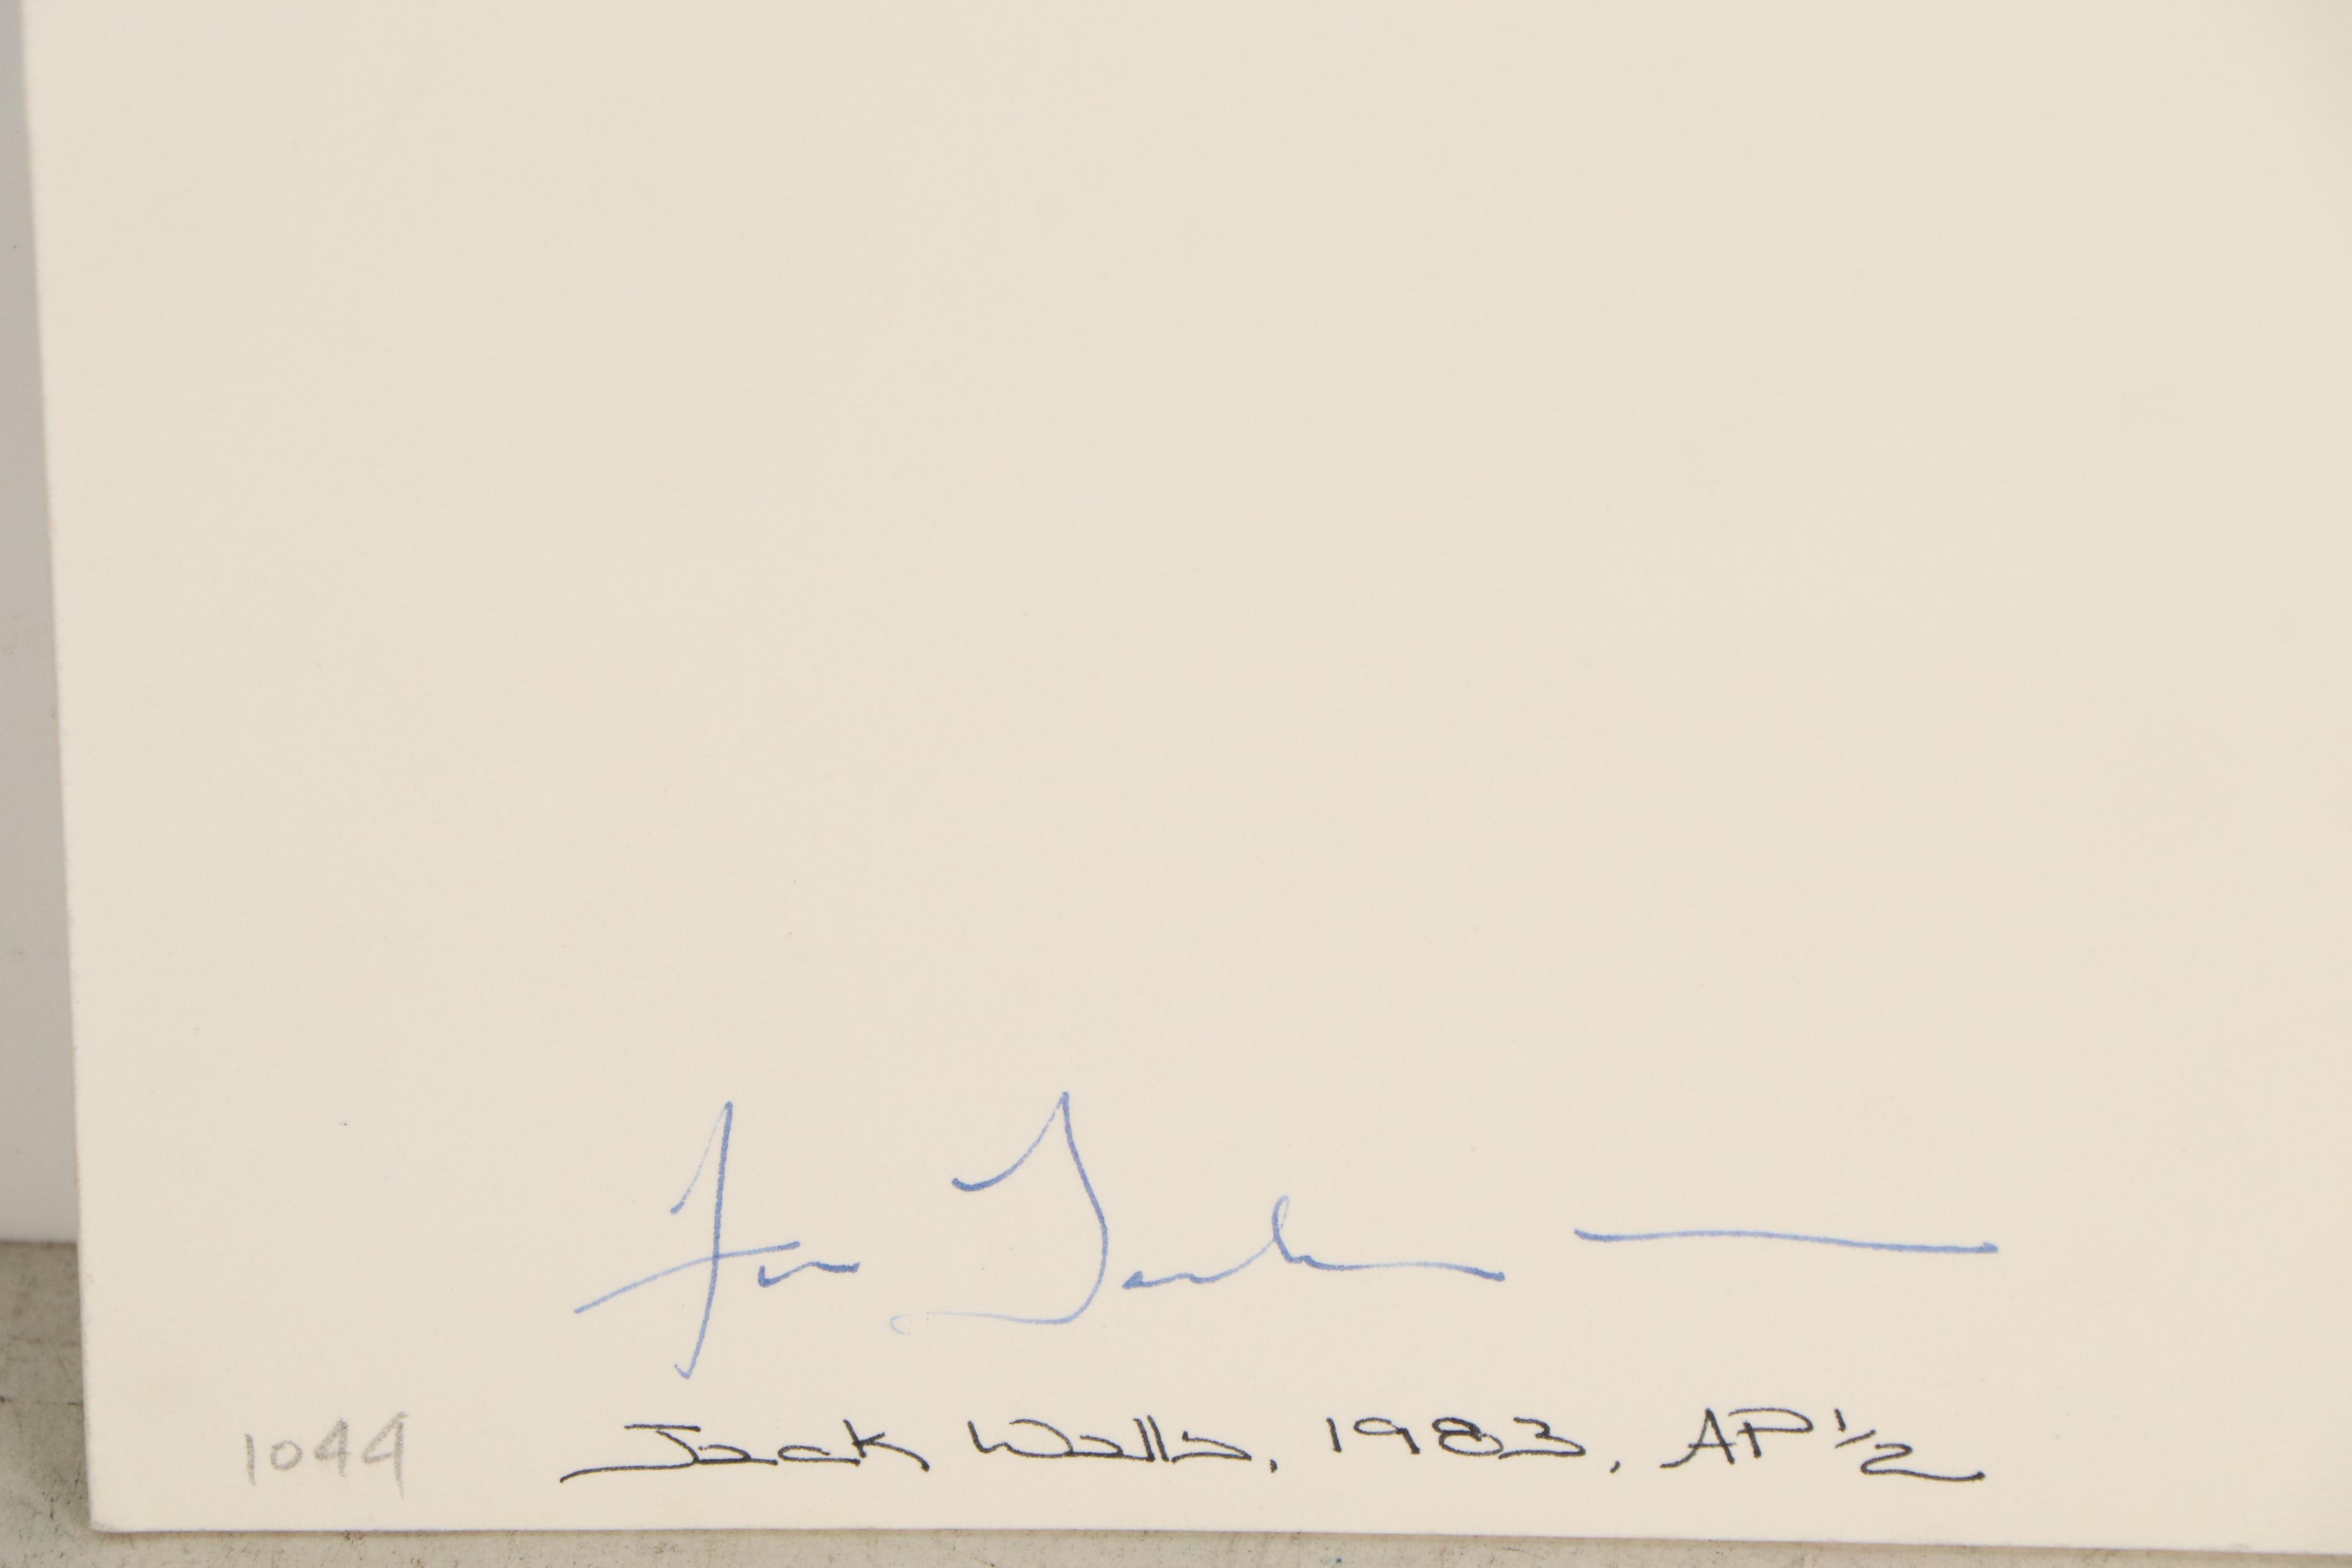 1044 Jack Walls, 1983, AP 1/2